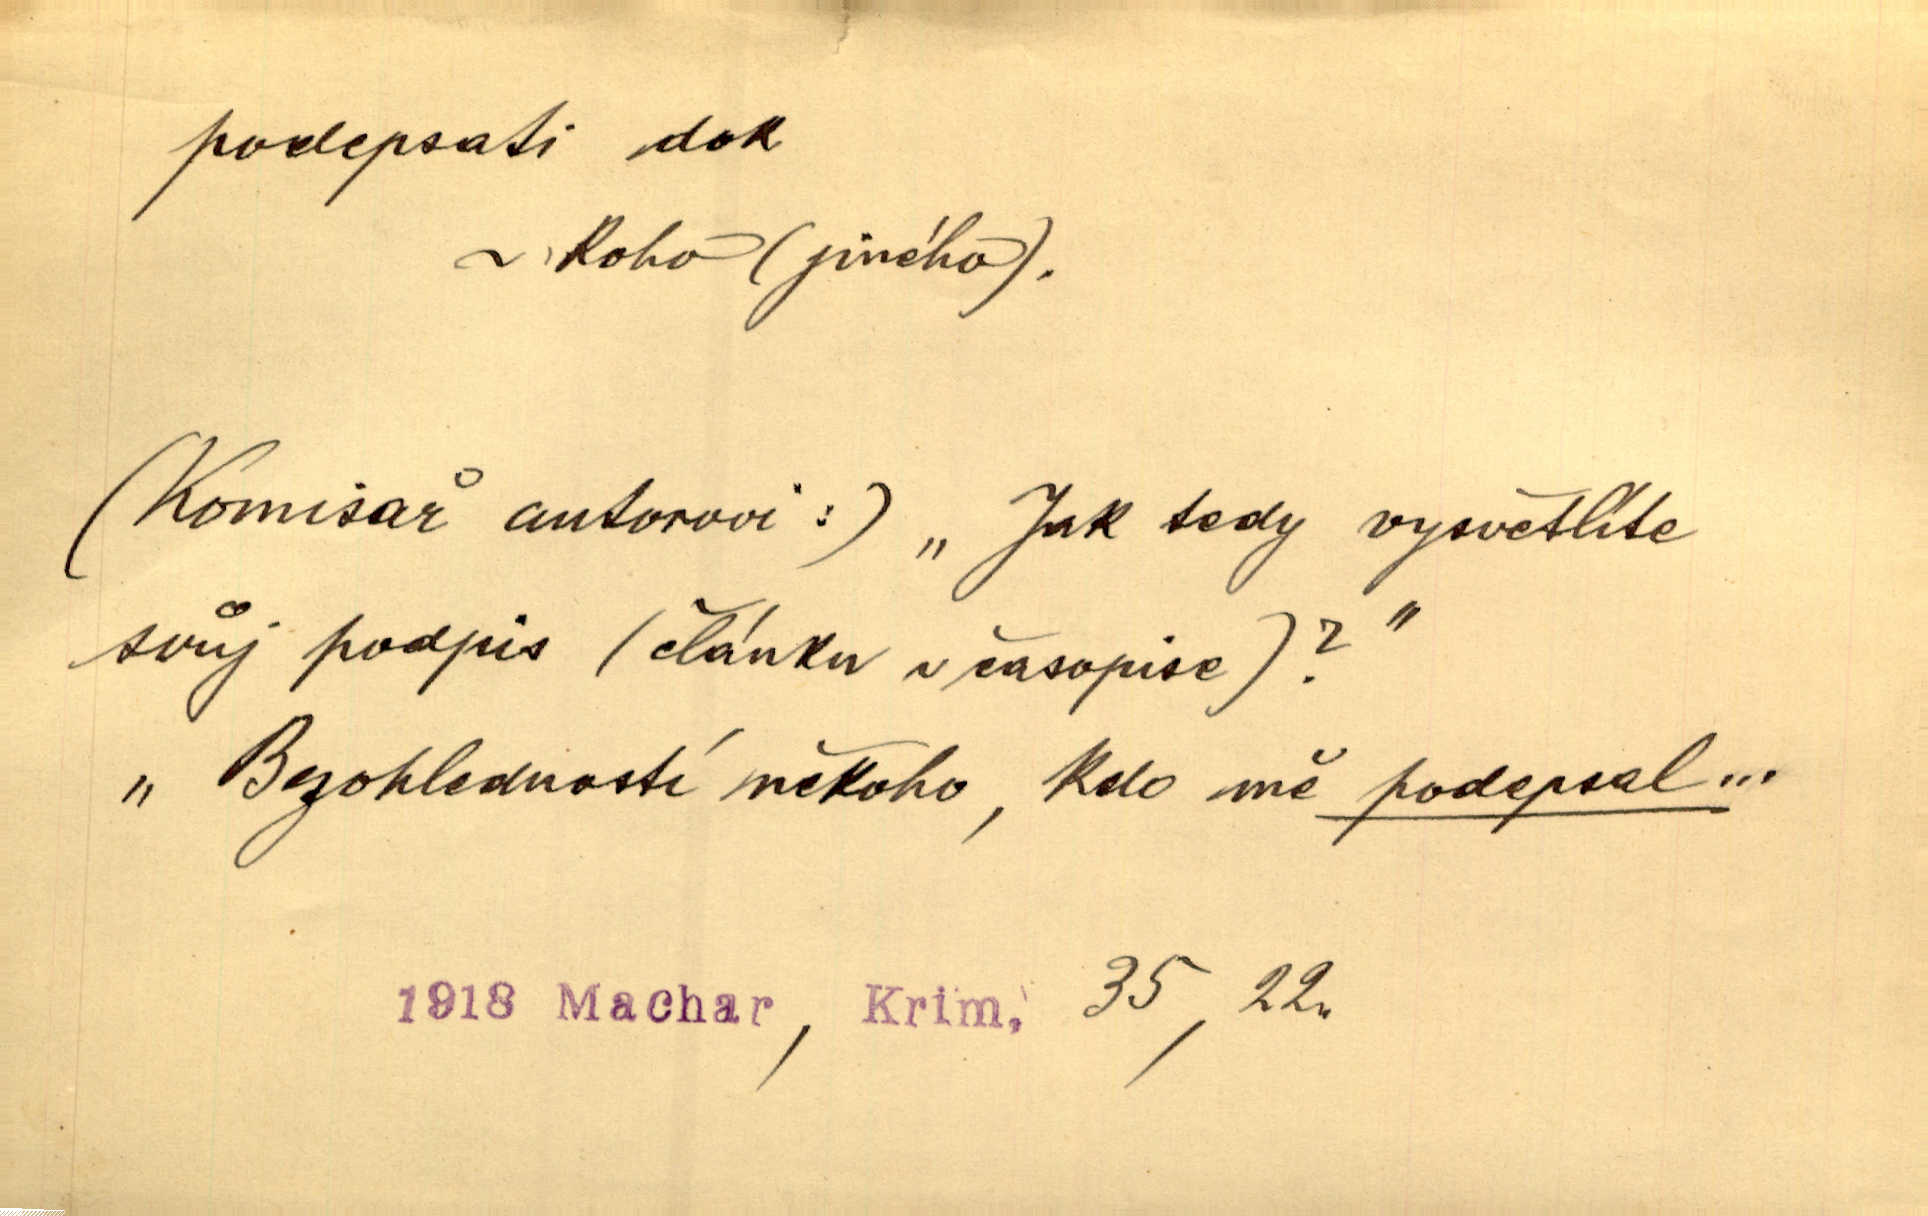 podepsati dok
~ koho (jiného).
(Komisař autorovi :) „Jak tedy vysvětlíte
svůj podpis (článku v časopise)?"
„Bezohledností někoho, kdo mě podepsal...
1918 Machar, Krim. 35, 22.